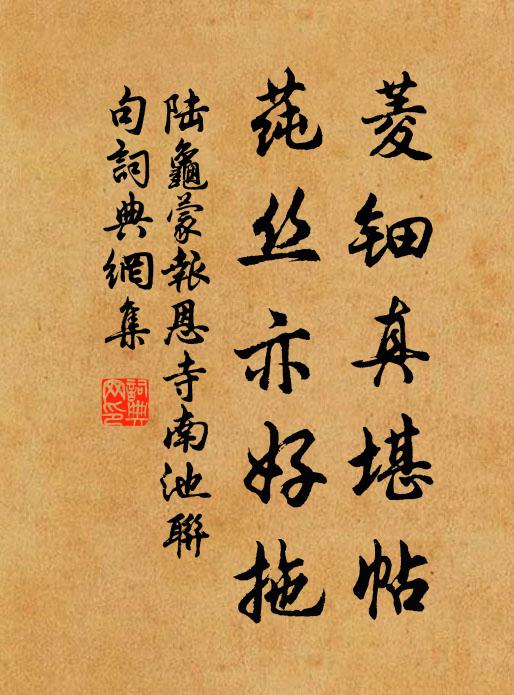 菱钿真堪帖
莼丝亦好拖
陆龜蒙報恩寺南池聯
句詞典網集
詞典網印